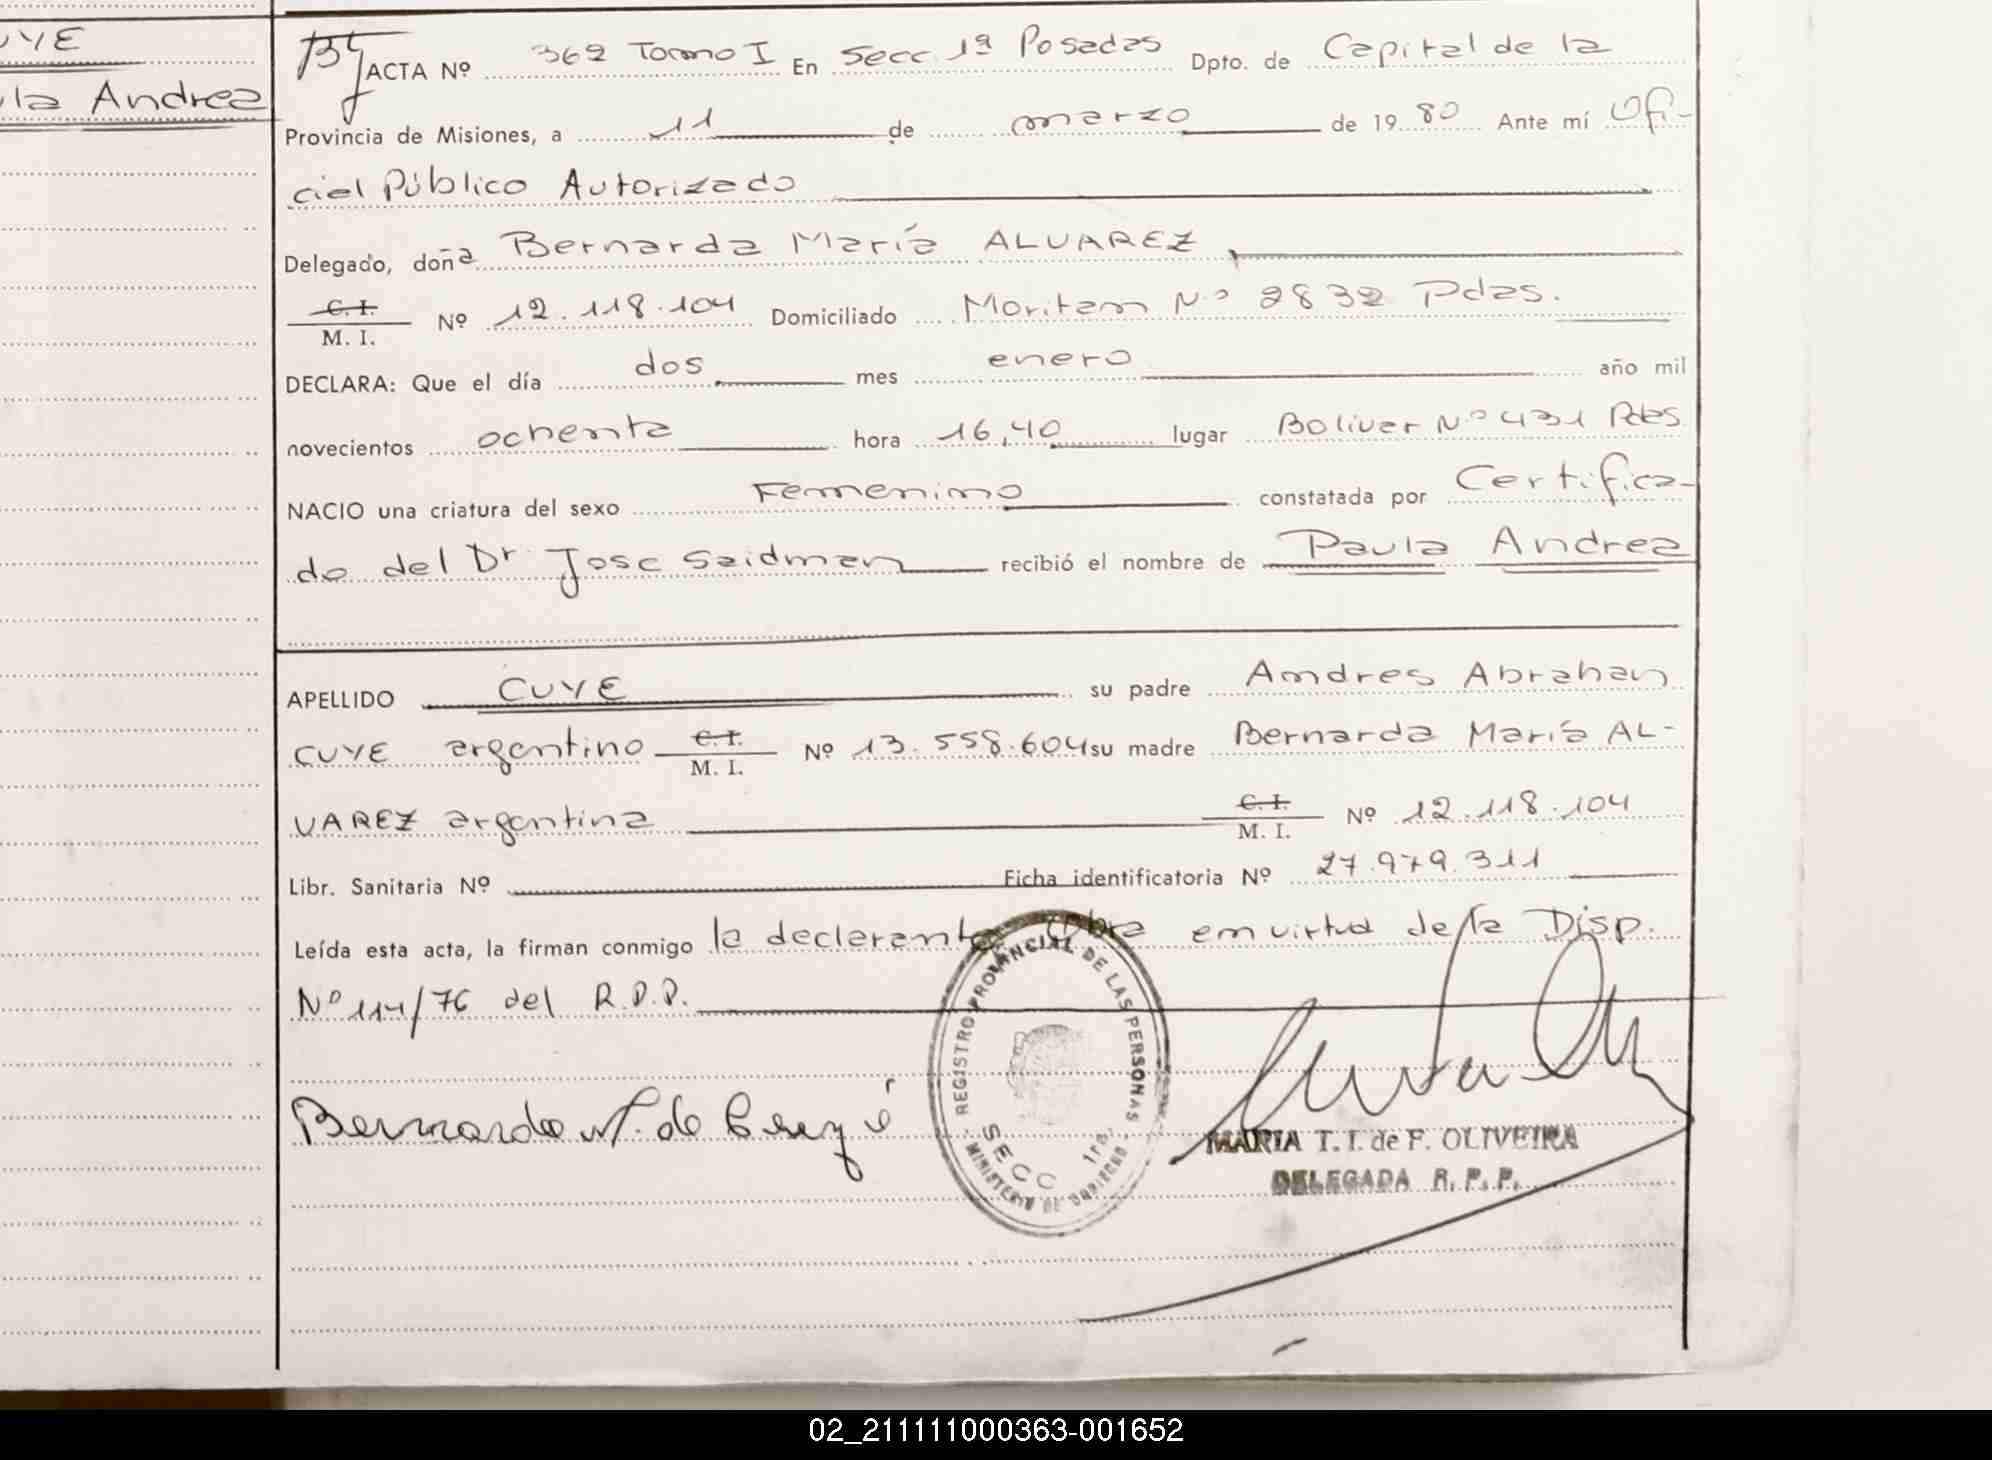 UYE
ula Andrea
ACTA Nº 362 Tomo I En Secc. 1ª Posadas Dpto. de Capital de la
Provincia de Misiones, a 11 de marzo de 1980 Ante mí Ofi-
cial Público Autorizado
Delegado, doña Bernarda María ALVAREZ,
C. I.
M. I. Nº 12.118.104 Domiciliado Moritan Nº 2832 Pdas.
DECLARA: Que el día dos mes enero año mil
novecientos ochenta hora 16,40 lugar Bolivar Nº 431 Pdas
NACIO una criatura del sexo Femenino constatada por Certifica-
do del Dr. Jose Saidman recibió el nombre de Paula Andrea
APELLIDO CUYE su padre Andres Abrahan
CUYE argentino C. I. M. I. Nº 13.558.604 su madre Bernarda María AL-
VAREZ argentina C. I. M. I. Nº 12.118.104
Libr. Sanitaria Nº Ficha identificatoria Nº 27.979.311
Leída esta acta, la firman conmigo la declarante. Obra en virtud de la Disp.
Nº 114/76 del R.P.P.
REGISTRO PROVINCIAL DE LAS PERSONAS
SECC 1ra.
MINISTERIO DE GOBIERNO
Bernarda de
MARIA T. I. de F. OLIVEIRA
DELEGADA R. P. P.
02_211111000363-001652